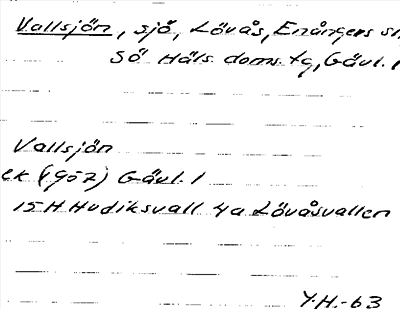 Vallsjön, sjö, Lövås, Enångers sn
Sö Häls. doms. tg, Gävl. l
Vallsjön
ek (1952) Gävl. l
15 H Hudiksvall 4a Lövåsvallen
Y.H.-63